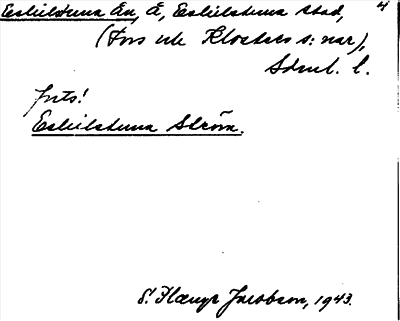 Eskilstuna Ån, Å, Eskilstuna stad, 4
(Fors ute Klosters s:nar),
Sdml. l.
Forts!
Eskilstuna Ström.
Jacobson, 1943.